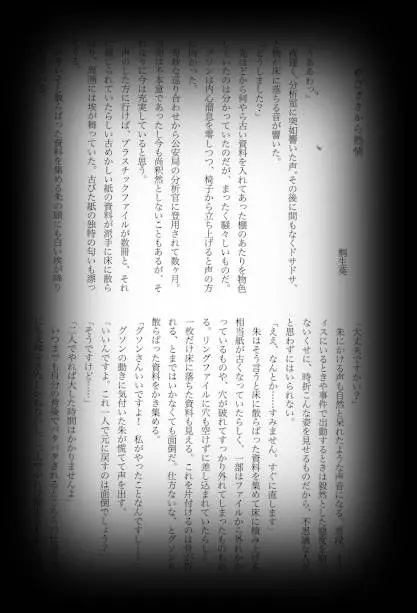 から熱情
桐生菜
うああわっ。
突如響いた声。その後に間もなくドサドサ、
物が床に落ちる音が響いた。
「どうしました？」
ほどから何やら古い資料を入れてあった棚のあたりを物色
していたのは分かっていたのだが、まったく騒々しいものだ。
グソンは内心溜息を零しつつ、椅子から立ち上げると声の方
向かった。
な巡り合わせから公安局の分析官に登用されて数ヶ月。
は不本意であったし今も尚釈然としないこともあるが、そ
に今は充実していると思う。
声のした方に行けば、プラスチックファイルが数冊と、それ
じられていたらしい古めかしい紙の資料が派手に床に散ら
り、周囲には埃が舞っていた。古びた紙の独特の匂いも漂っ
散らばった資料を集める朱の頭にも白い埃が降り
大丈夫ですか？」
朱にかける声も自然と呆れたような声音になる。
ィスにいるときや事件で出動するときは毅然とした
ないくせに、時折こんな姿を見せるものだから、不思議な
と思わずにはいられない。
「ええ、なんとか……すみません、すぐに直します」
朱はそう言うと床に散らばった資料を集めて床に積み
相当紙が古くなっていたらしく、一部はファイルから外れか
っているものや、穴が破れてすっかり外れてしまったものもあ
る。リングファイルに穴も空けずに差し込まれていたらしく
一枚だけ床に落ちた資料も見える。これを片付けるのは骨が
れる、とまではいかなくても面倒だ。仕方ないな、とグソン
散らばった資料をかき集める。
「グソンさんいいですよ！　私がやったことなんですし
グソンの動きに気付いた朱が慌てて声を出す。
「いいんですよ。これ一人で元に戻すのは面倒でしょう？
「そうですけど……」
「二人でやれば大した時間はかかりませんよ」
いつまでも自分の背後でバタバタされる